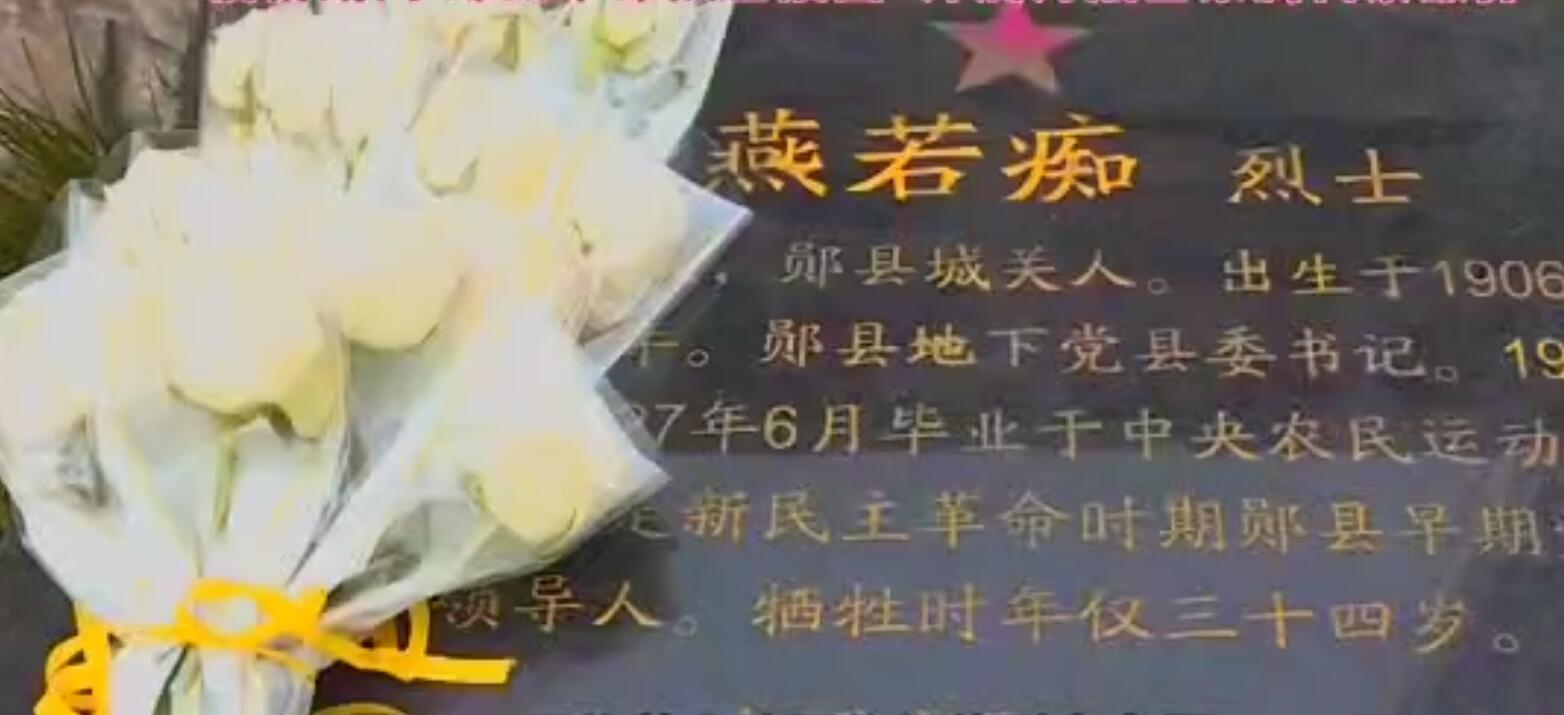 燕若痴 烈士
，郧县城关人。出生于1906
。郧县地下党县委书记。19
7年6月毕业于中央农民运动
新民主革命时期郧县早期
领导人。牺牲时年仅三十四岁。